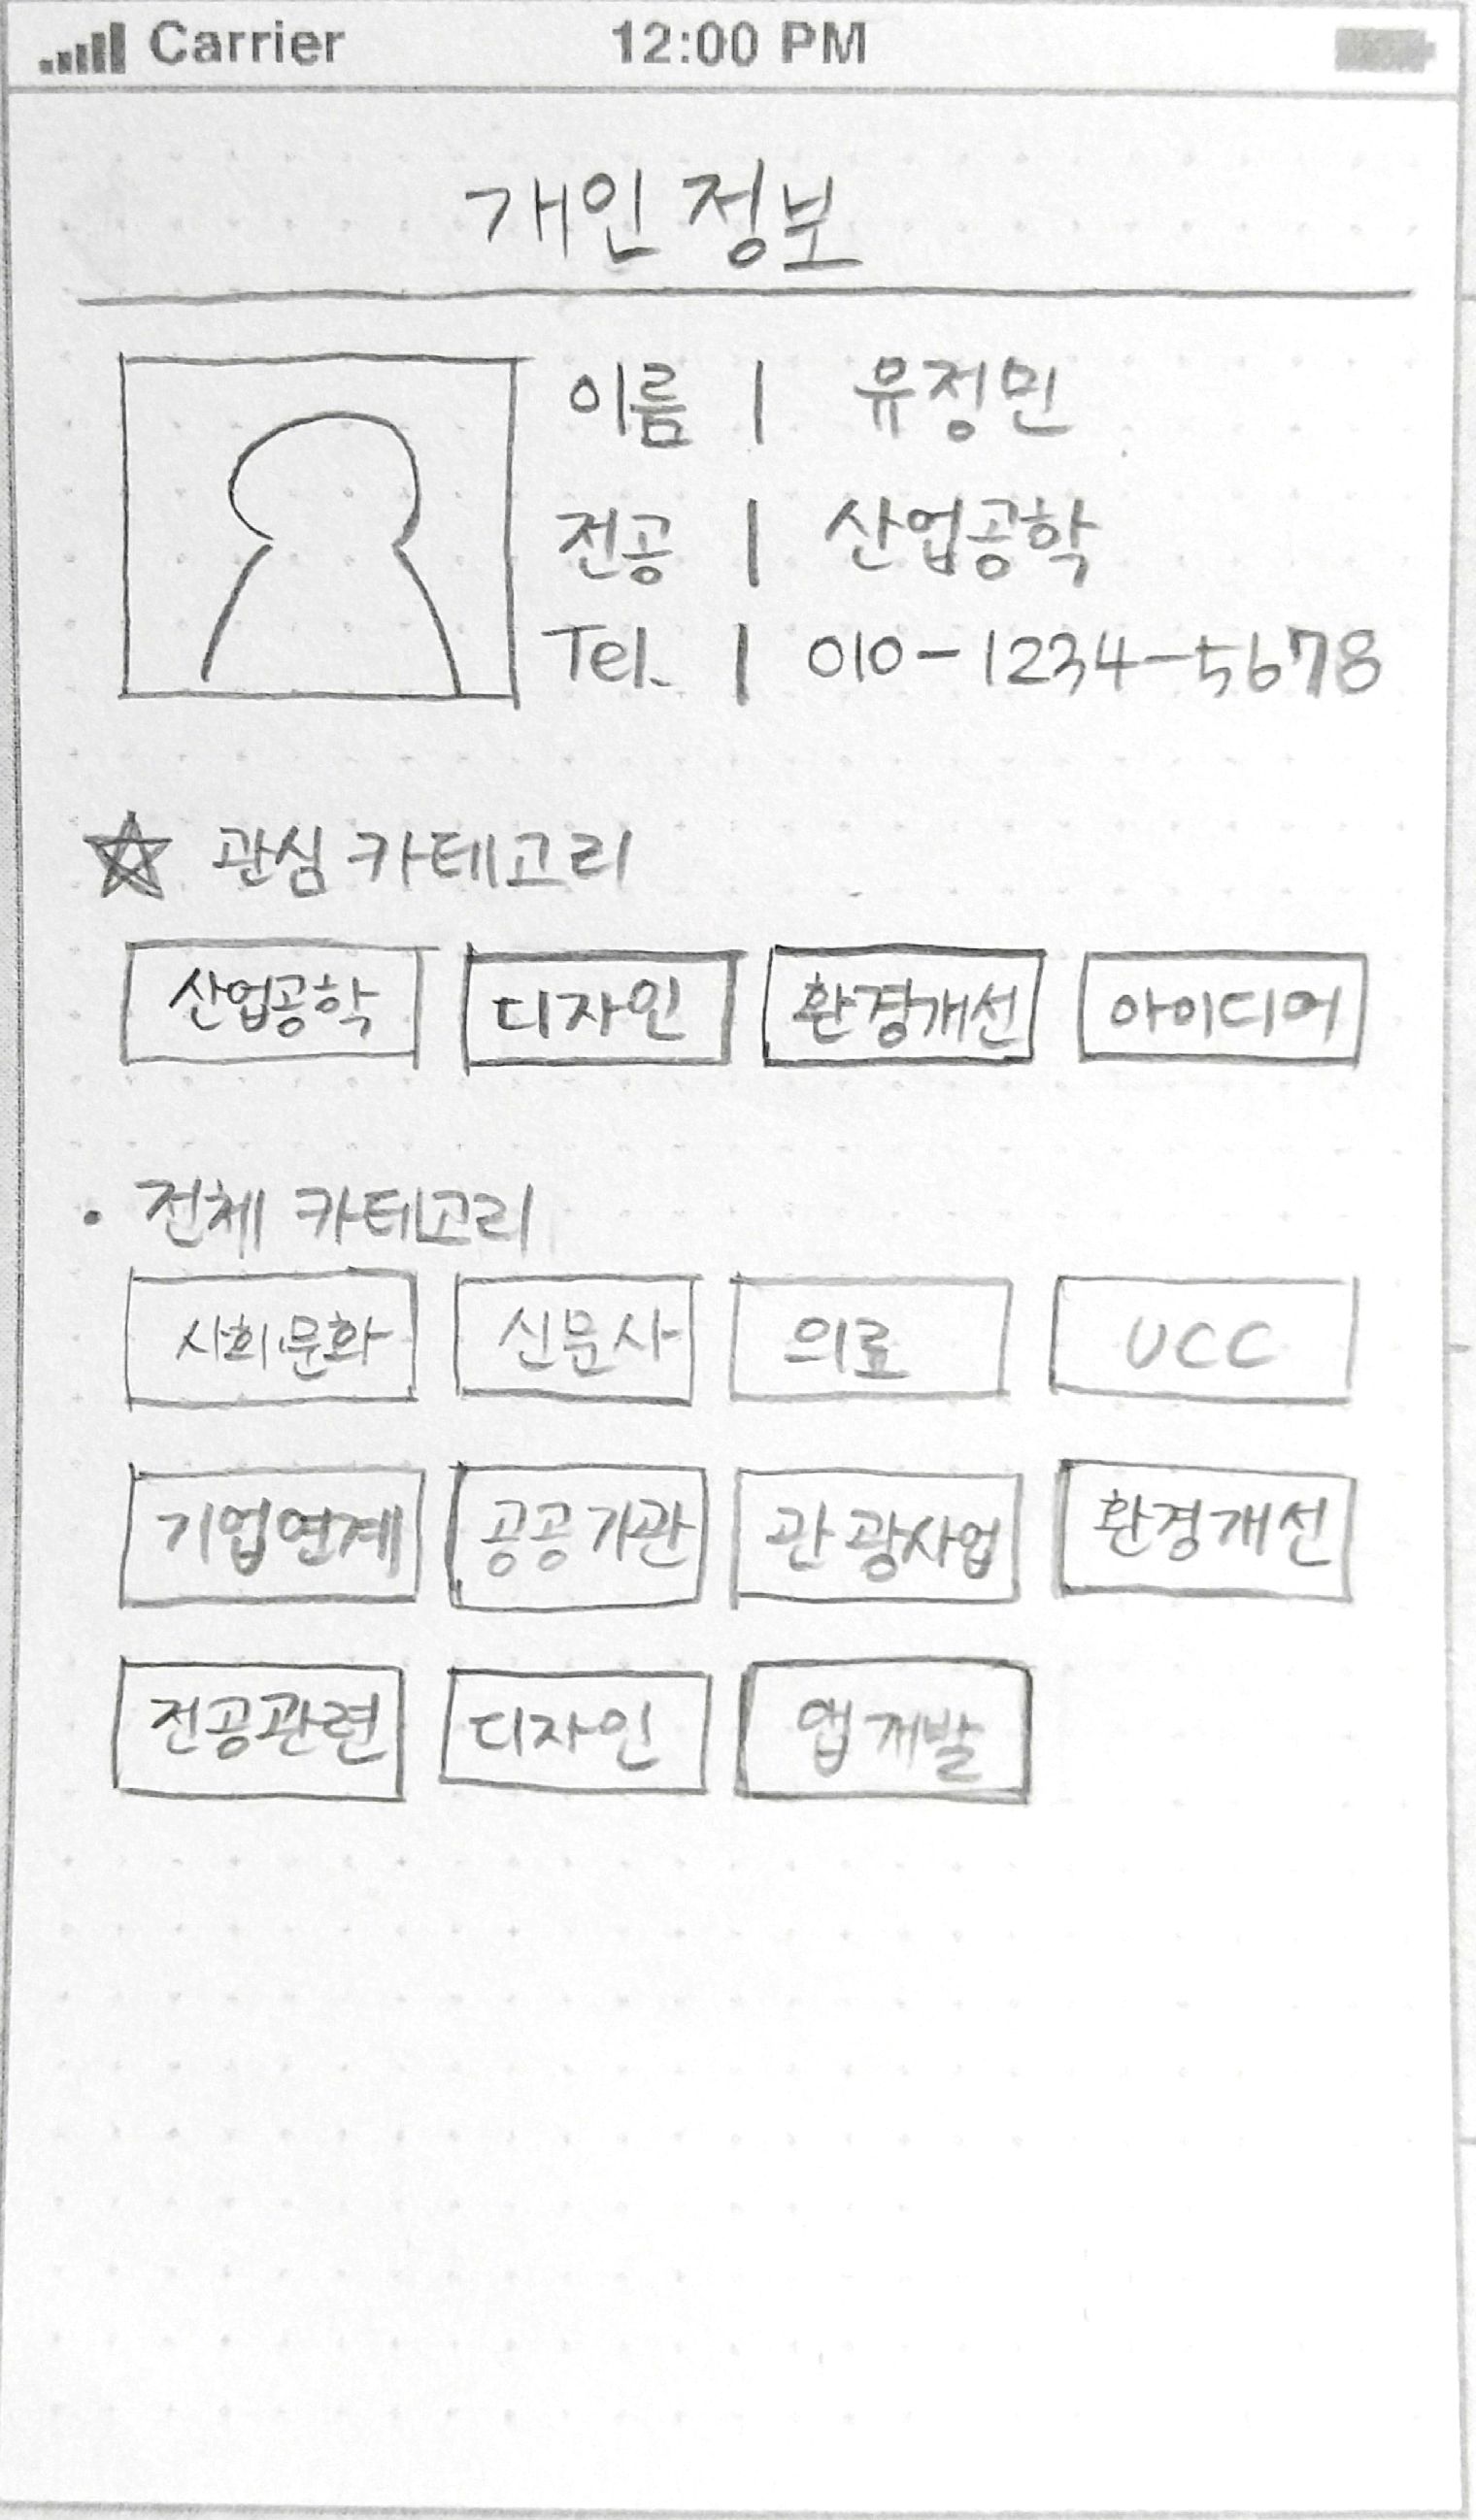 Carrier 12:00 PM
개인정보
이름 | 유정민
전공 | 산업공학
Tel. | 010-1234-5678
☆ 관심 카테고리
산업공학 디자인 환경개선 아이디어
· 전체 카테고리
사회문화 신문사 의료 UCC
기업연계 공공기관 관광사업 환경개선
전공관련 디자인 앱개발